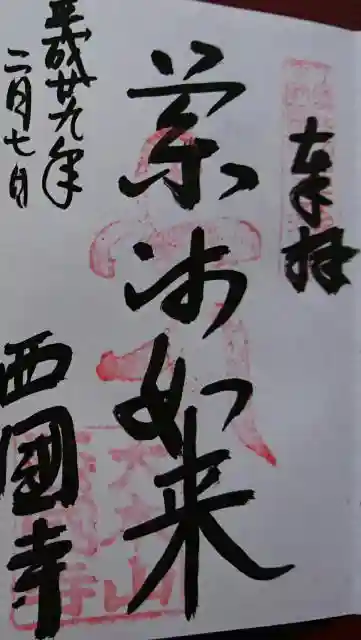 奉拝
薬师如来
平成廿九年
二月七日
西國寺